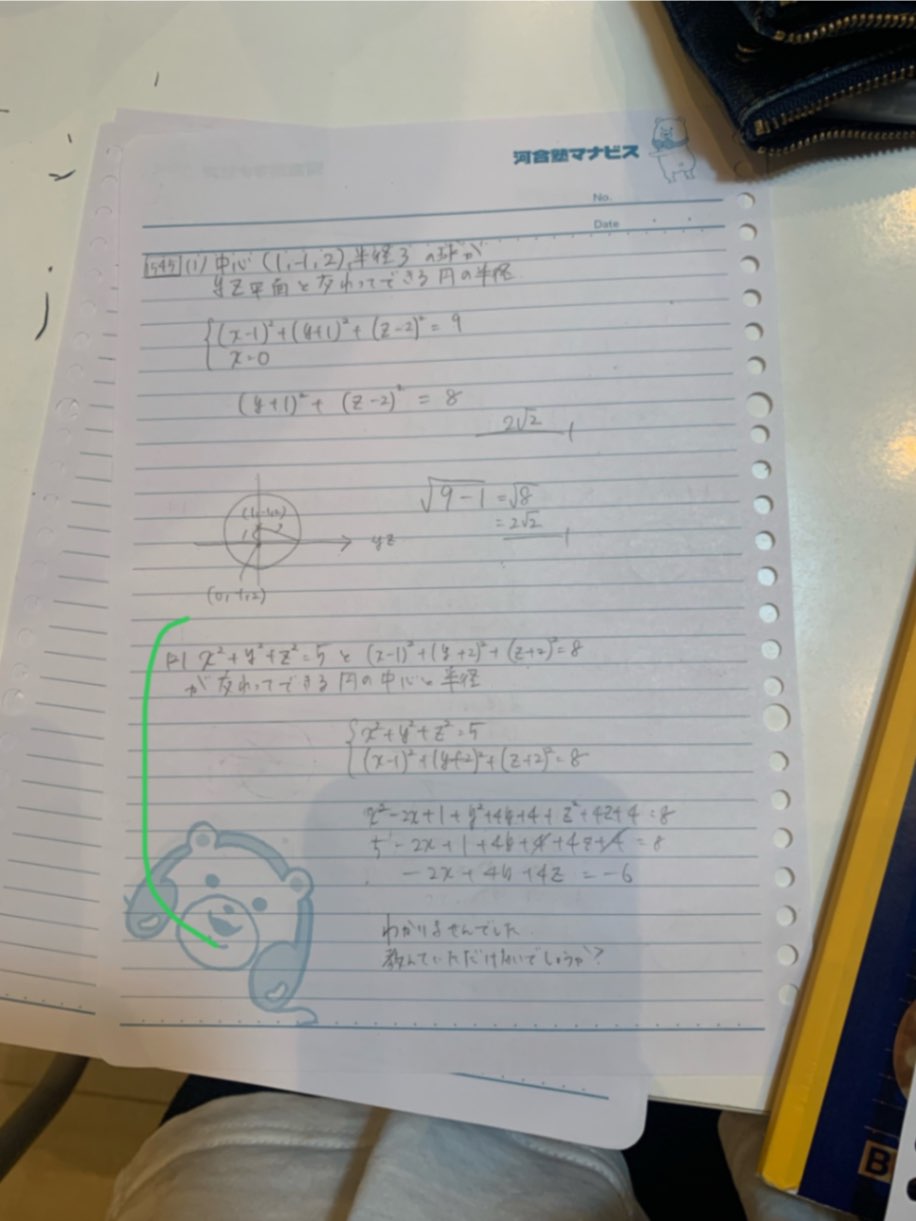 河合塾マナビス
No.
Date
545 (1) 中心 (1,-1,2), 半径3 の球が
yz平面と交わってできる円の半径
(x-1)²+(y+1)²+(z-2)² = 9
x=0
(y+1)² + (z-2)² = 8
2√2
√9-1 = √8
= 2√2
(1,-1,2)
3
1
yz
(0,-1,2)
(2) x²+y²+z²=5 と (x-1)²+(y+2)²+(z+2)²=8
が交わってできる円の中心と半径
x²+y²+z²=5
(x-1)²+(y+2)²+(z+2)²=8
x²-2x+1+y²+4y+4+z²+4z+4=8
5-2x+1+4y+4+4z+4=8
-2x+4y+4z=-6
わかりませんでした
教えていただけないでしょうか?
B